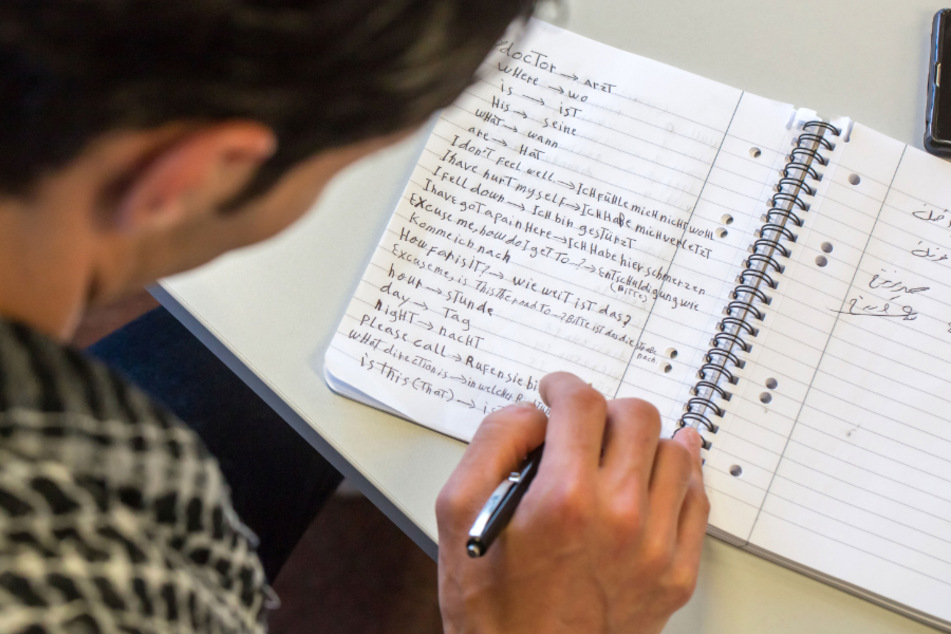 doctor → arzt
where → wo
is → ist
His → seine
what → wann
are → Hat
I don't feel well → Ich fühle mich nicht wohl
I have hurt myself → Ich Habe mich verletzt
I fell down → Ich bin gestürzt
I have got a pain Here → Ich Habe hier schmerzen
Excuse me, how do I get to -? → Entschuldigung wie
(Bitte)
komme ich nach
How far is it? → wie weit ist das?
Excuse me, is this the road to -? Bitte ist das die Straße
nach
hour → stunde
day → Tag
night → nacht
please call → Rufen sie
what direction is → in welcher
is this (that) →